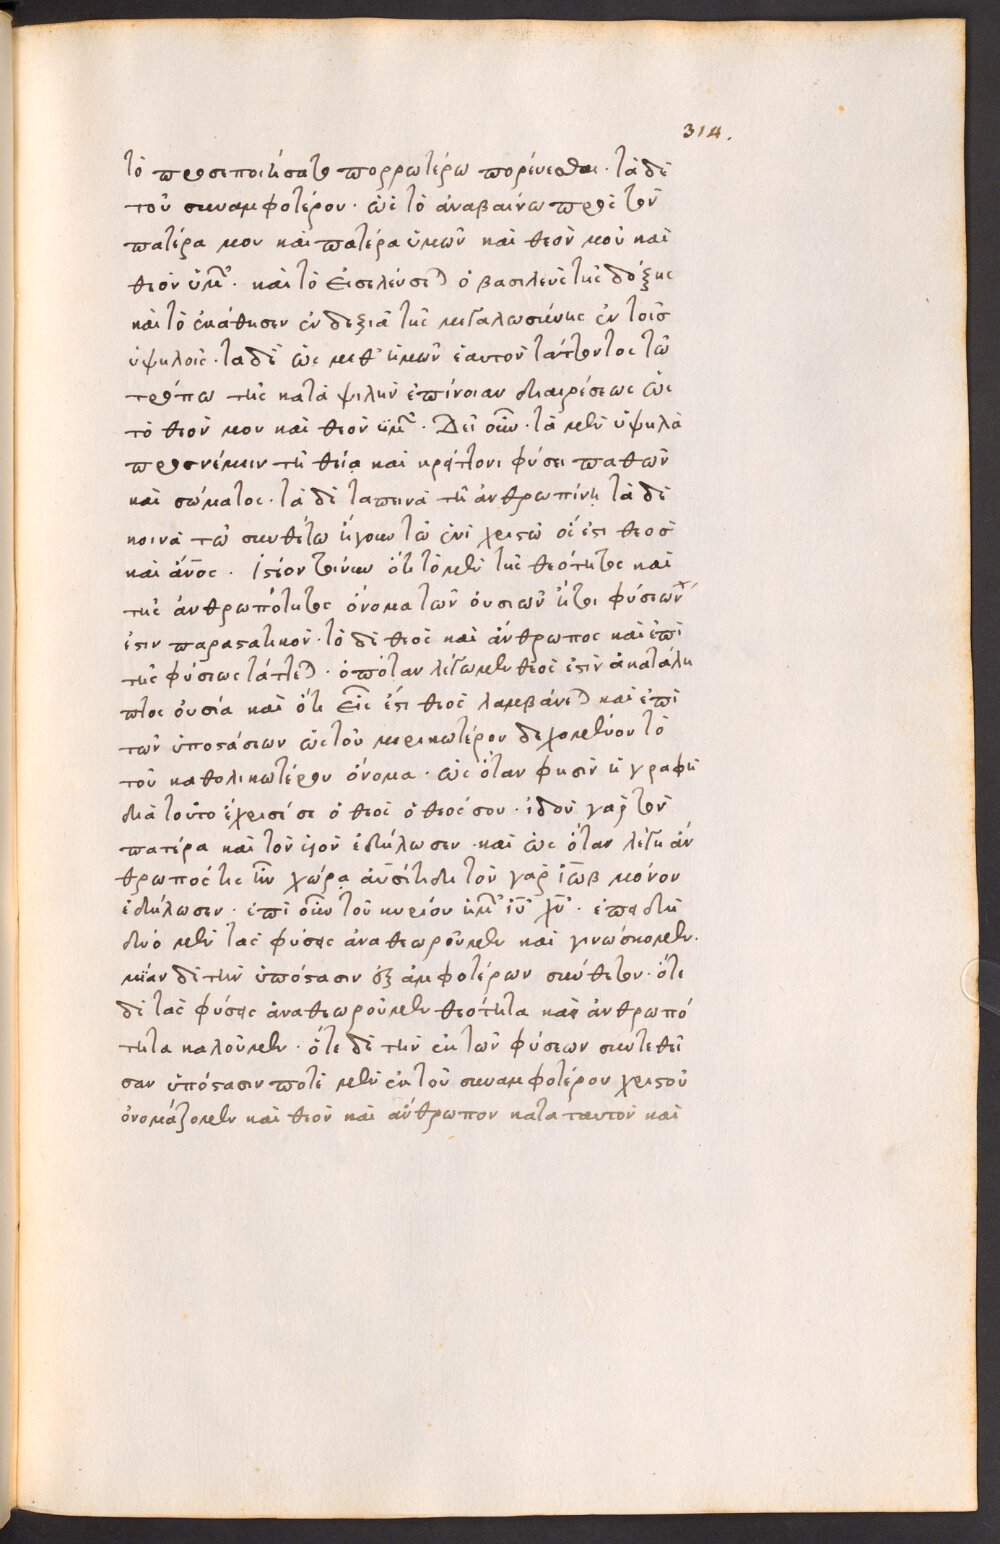 314.
τὸ προσεποιήσατο πορρωτέρω πορεύεσθαι· τὰ δὲ
τοῦ συναμφοτέρου· ὡς τὸ ἀναβαίνω πρὸς τὸν
πατέρα μου καὶ πατέρα ὑμῶν καὶ θεὸν μοῦ καὶ
θεὸν ὑμ̃· καὶ τὸ εἰσελεύσε) ὁ βασιλεὺς τῆς δόξης
καὶ τὸ ἐκάθησεν ἐν δεξιᾶ τῆς μεγαλωσύνης ἐν τοῖς
ὑψηλοῖς· τὰ δὲ ὡς μεθ' ἡμῶν ἑαυτὸν τάττοντος τῶ
τρόπω τῆς κατὰ ψιλὴν ἐπίνοιαν διαιρέσεως ὡς
τὸ θεὸν μου καὶ θεὸν ὑμ̃· Δεῖ οὖν· τὰ μὲν ὑψηλὰ
προσνέμειν τῆ θεία καὶ κρείττονι φύσει παθῶν
καὶ σώματος· τὰ δὲ ταπεινὰ τῆ ἀνθρωπίνη τὰ δὲ
κοινὰ τῶ συνθέτω ἤγουν τῶ ἑνὶ χριστῶ ὅς ἐστι θεὸς
καὶ ἄν̅ος· ἰστέον τοίνυν ὅτι τὸ μὲν τῆς θεότητος καὶ
τῆς ἀνθρωπότητος ὄνομα τῶν οὐσιῶν ἤτοι φύσεων
ἐστιν παραστατικὸν· τὸ δὲ θεὸς καὶ ἄνθρωπος καὶ ἐπὶ
τῆς φύσεως τάττε)· ὁπόταν λέγωμεν θεός ἐστὶν ἀκατάλη
πτος οὐσία καὶ ὅτι εἷς ἐστι θεὸς λαμβάνε) καὶ ἐπὶ
τῶν ὑποστάσεων ὡς τοῦ μερικωτέρου δεχομένου τὸ
τοῦ καθολικωτέρου ὄνομα· ὡς ὅταν φησὶν ἡ γραφὴ
διὰ τοῦτο ἔχρισέ σε ὁ θεὸς ὁ θεός σου· ἰδοὺ γὰρ τὸν
πατέρα καὶ τὸν υἱὸν ἐδήλωσεν· καὶ ὡς ὅταν λέγη ἄν
θρωπός τις ἦν χώρα αὐσίτιδι τὸν γὰρ ἰὼβ μόνον
ἐδήλωσεν· ἐπὶ οὖν τοῦ κυρίου ἡμ̃ ἰυ̅ χυ̅· ἐπειδὴ
δύο μὲν τὰς φύσεις ἀναθεωροῦμεν καὶ γινώσκομεν·
μίαν δὲ τὴν ὑπόστασιν ἐξ ἀμφοτέρων σύνθετον· ὅτε
δὲ τὰς φύσεις ἀναθεωροῦμεν θεότητα καὶ ἀνθρωπό
τητα καλοῦμεν· ὅτε δὲ τὴν ἐκ τῶν φύσεων συντεθεῖ
σαν ὑπόστασιν ποτὲ μὲν ἐκ τοῦ συναμφοτέρου χριστοῦ
ὀνομάζομεν καὶ θεὸν καὶ ἄνθρωπον κατα ταυτὸν καὶ